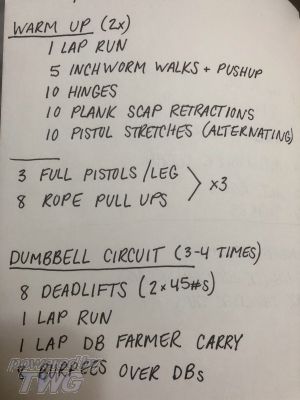 WARM UP (2x)
1 LAP RUN
5 INCHWORM WALKS + PUSHUP
10 HINGES
10 PLANK SCAP RETRACTIONS
10 PISTOL STRETCHES (ALTERNATING)
3 FULL PISTOLS/LEG
8 ROPE PULL UPS
> x3
DUMBBELL CIRCUIT (3-4 TIMES)
8 DEADLIFTS (2x45#s)
1 LAP RUN
1 LAP DB FARMER CARRY
8 BURPEES OVER DBs
TWG